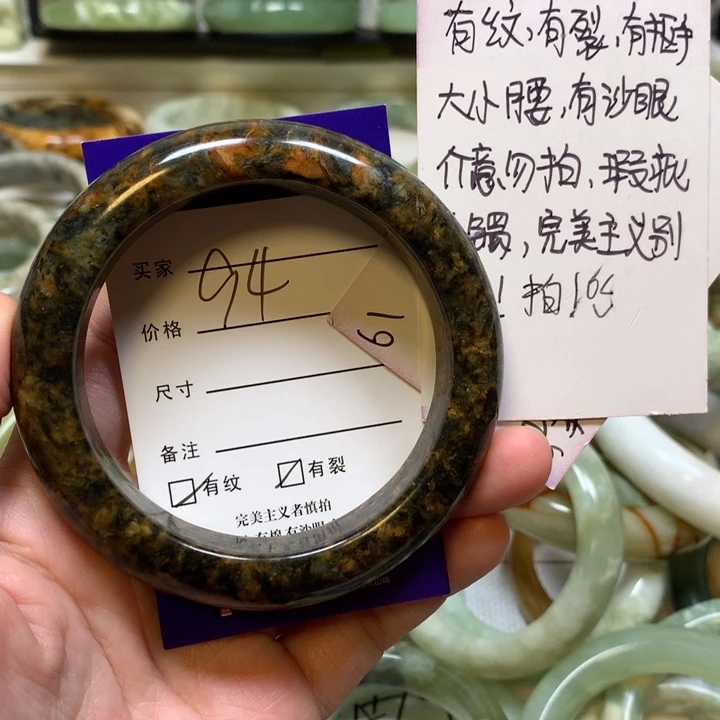 有纹,有裂,有
大小腰,有沙眼
介意勿拍、瑕疵
镯,完美主义别
! 拍
买家
94
价格
61
尺寸
备注
有纹 有裂
完美主义者慎拍
有棉 有沙眼